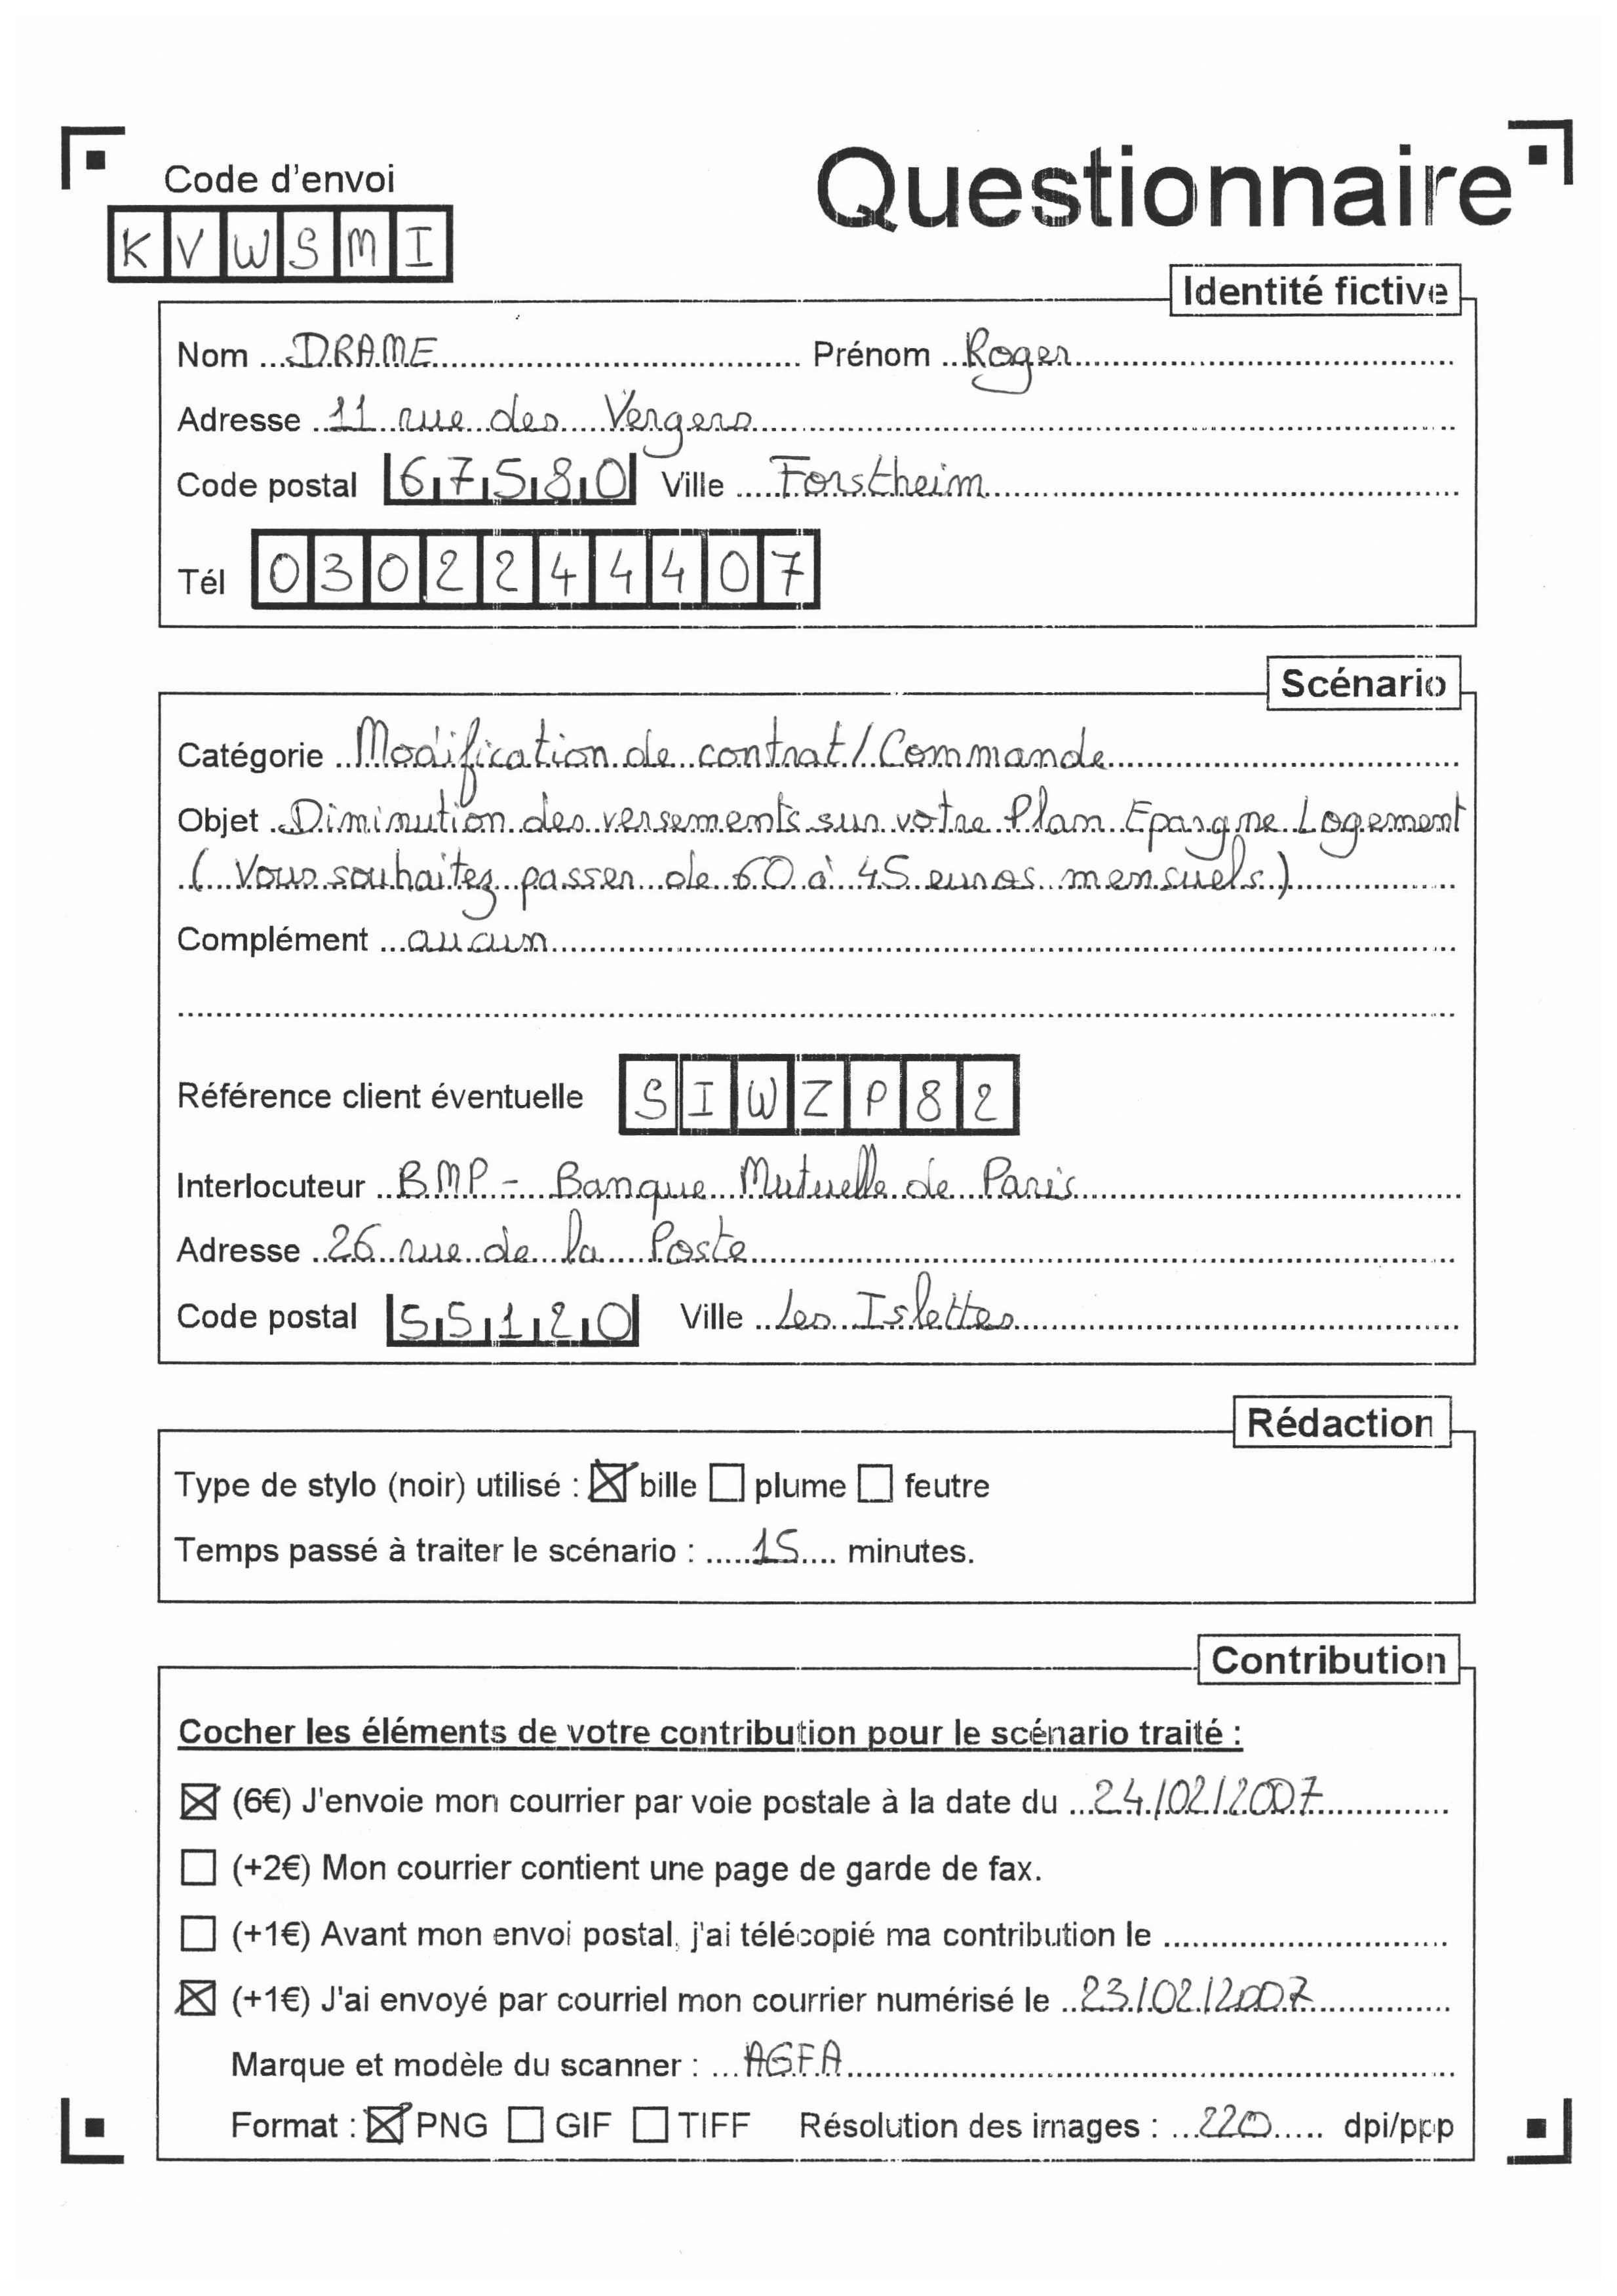 Code d'envoi
Questionnaire
KVWSMI
Identité fictive
Nom DRAME Prénom Roger
Adresse 11 rue des Vergers
Code postal 67580 Ville Forstheim
Tél 0302244407
Scénario
Catégorie Modification de contrat/Commande
Objet Diminution des versements sur votre Plan Epargne Logement
(Vous souhaitez passer de 60 à 45 euros mensuels)
Complément aucun
Référence client éventuelle SIWZP82
Interlocuteur BMP - Banque Mutuelle de Paris
Adresse 26 rue de la Poste
Code postal 55120 Ville Les Islettes
Rédaction
Type de stylo (noir) utilisé : ☒ bille ☐ plume ☐ feutre
Temps passé à traiter le scénario : 15 minutes.
Contribution
Cocher les éléments de votre contribution pour le scénario traité :
☒ (6€) J'envoie mon courrier par voie postale à la date du 24/02/2007
☐ (+2€) Mon courrier contient une page de garde de fax.
☐ (+1€) Avant mon envoi postal, j'ai télécopié ma contribution le
☒ (+1€) J'ai envoyé par courriel mon courrier numérisé le 23/02/2007
Marque et modèle du scanner : AGFA
Format : ☒ PNG ☐ GIF ☐ TIFF Résolution des images : 220 dpi/ppp